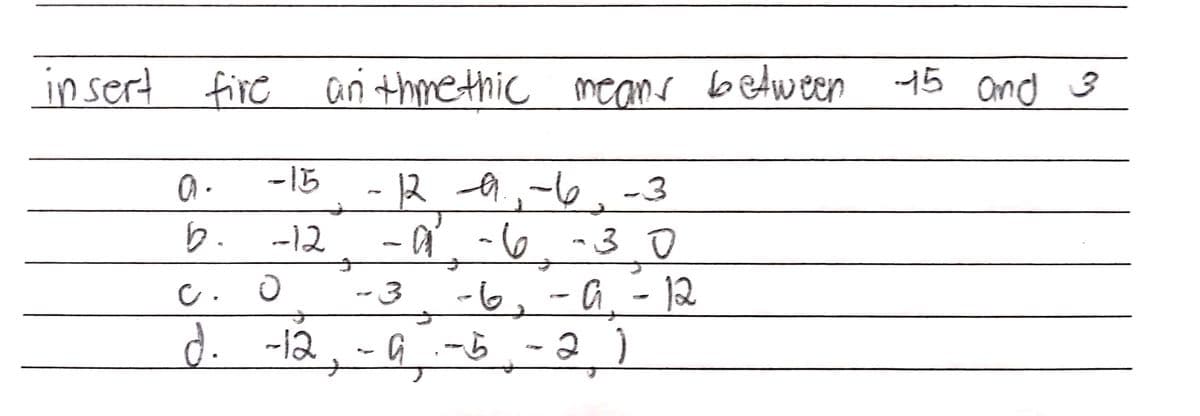 insert five arithmethic means between -15 and 3
a. -15, -12, -9, -6, -3
b. -12, -9, -6, -3, 0
c. 0, -3, -6, -9, -12
d. -12, -9, -5, -2, 1